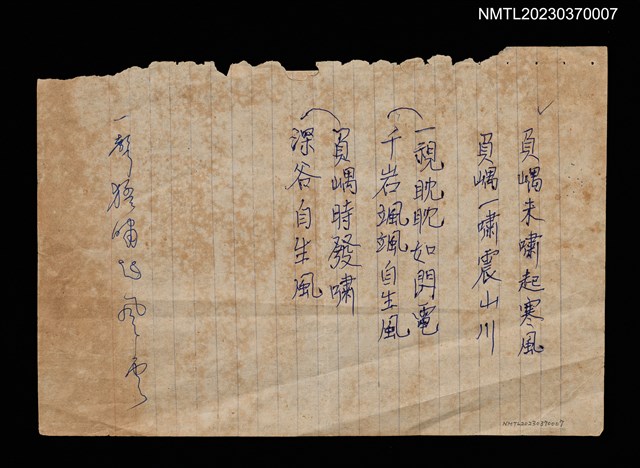 NMTL20230370007
負嵎未嘯起寒風
負嵎一嘯震山川
一視眈眈如閃電
千岩颯颯自生風
負嵎時發嘯
深谷自生風
一聲猿嘯起風雲
NMTL20230370007